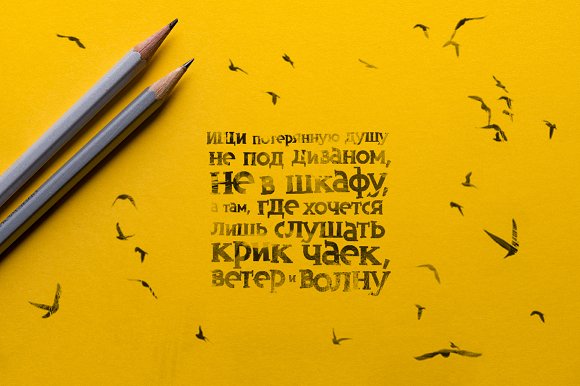 Ищи потерянную душу
не под диваном,
не в шкафу,
а там, где хочется
лишь слушать
крик чаек,
ветер и волну